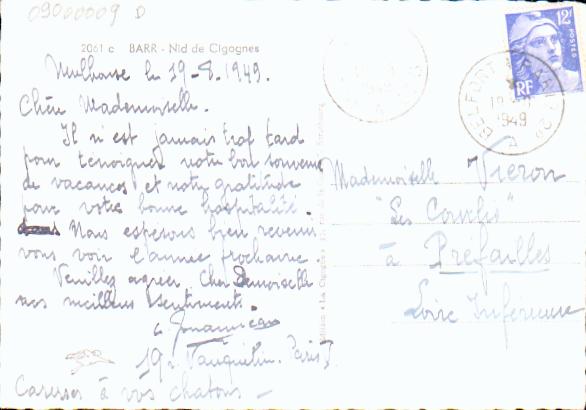 09000009 D
2061 c BARR - Nid de Cigognes
Mulhouse le 19-8.1949.
Chère Mademoiselle.
Il n'est jamais trop tard
pour temoigner notre bon souvenir
de vacances et notre gratitude
pour votre bonne hospitalité.
Nous esperons bien revenir
vous voir l'année prochaine.
Veuillez agreer Cher Demoiselle
nos meilleurs sentiments.
19 r. Vauquelin. Paris 5
Caresses à vos chatons -
12F
POSTES
RF
BELFORT
1949
Mademoiselle Vieron
"Les Courlis"
à Préfailles
Loire Inférieure